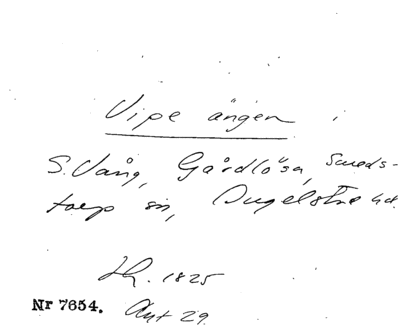 Vipe ängen i
S. Vång, Gårdlösa, Smeds-
torp sn, Ingelsta hd.
Sk. 1825
Nr 7654. Akt 29